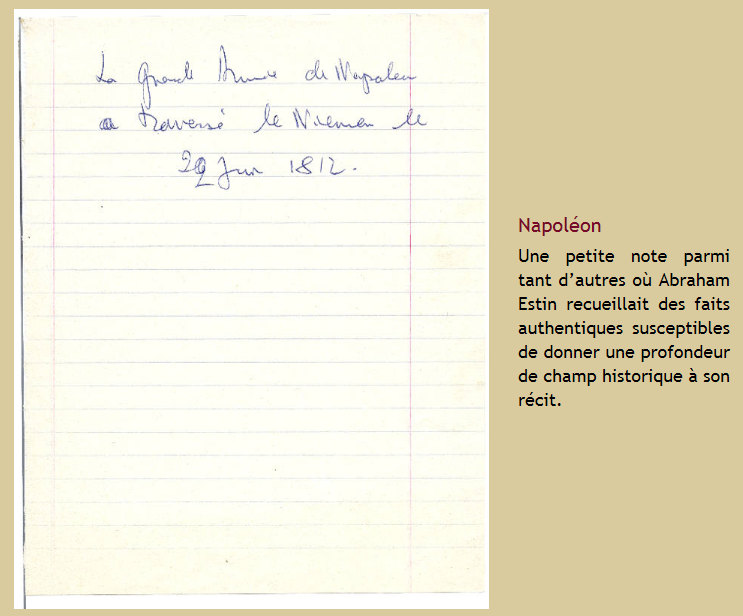 La Grande Armée de Napoléon
a traversé le Niemen le
Juin 1812.
Napoléon
Une petite note parmi
tant d’autres où Abraham
Estin recueillait des faits
authentiques susceptibles
de donner une profondeur
de champ historique à son
récit.